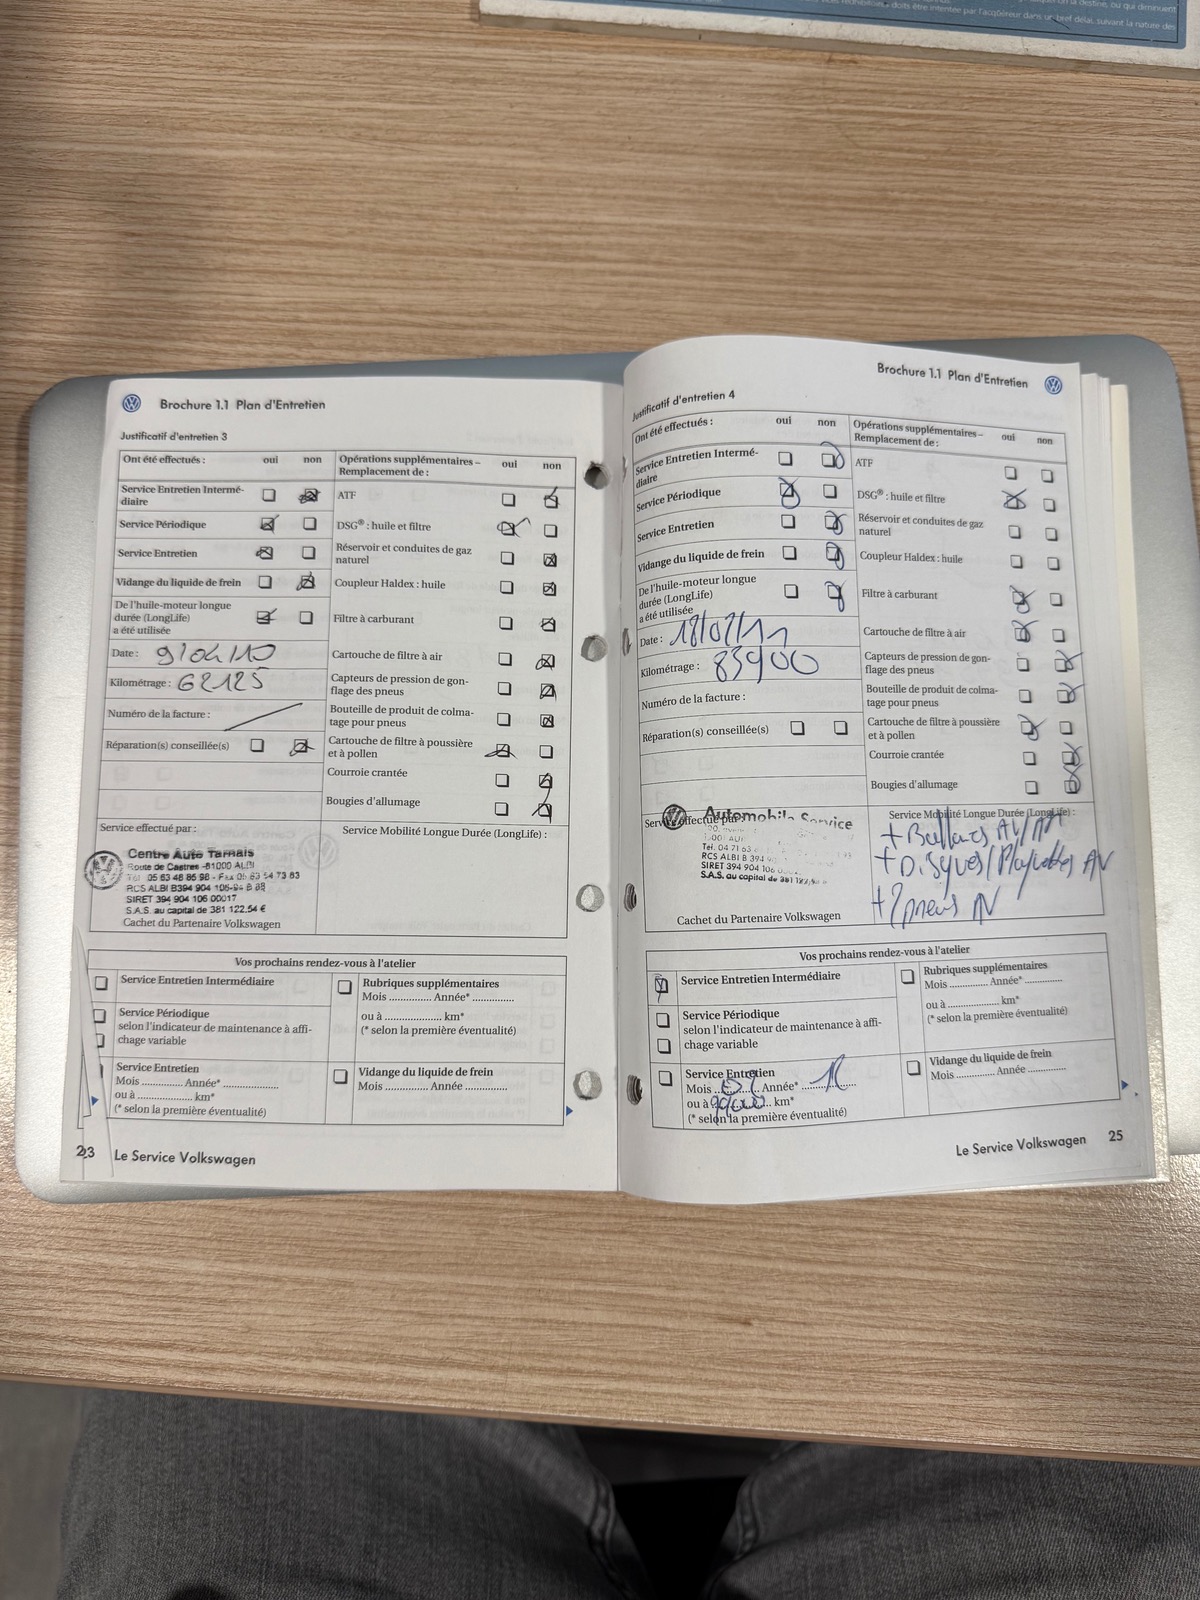 doits être intentée par l'acqéereur dans un bref délai, suivant la nature des
Brochure 1.1 Plan d'Entretien
Justificatif d'entretien 3
Ont été effectués : oui non
Opérations supplémentaires – Remplacement de : oui non
Service Entretien Intermé-
diaire
Service Périodique
Service Entretien
Vidange du liquide de frein
De l'huile-moteur longue
durée (LongLife)
a été utilisée
Date : 9/04/10
Kilométrage : 62125
Numéro de la facture :
Réparation(s) conseillée(s)
ATF
DSG® : huile et filtre
Réservoir et conduites de gaz
naturel
Coupleur Haldex : huile
Filtre à carburant
Cartouche de filtre à air
Capteurs de pression de gon-
flage des pneus
Bouteille de produit de colma-
tage pour pneus
Cartouche de filtre à poussière
et à pollen
Courroie crantée
Bougies d'allumage
Service effectué par :
Centre Auto Tarnais
Route de Castres -81000 ALBI
Tél 05 63 48 85 98 - Fax 05 63 54 73 83
RCS ALBI B394 904 106
SIRET 394 904 106 00017
S.A.S. au capital de 381 122,54 €
Cachet du Partenaire Volkswagen
Service Mobilité Longue Durée (LongLife) :
Vos prochains rendez-vous à l'atelier
Service Entretien Intermédiaire
Service Périodique
selon l'indicateur de maintenance à affi-
chage variable
Service Entretien
Mois ............. Année* .................
ou à ......................... km*
(* selon la première éventualité)
Rubriques supplémentaires
Mois ............. Année* .............
ou à .................... km*
(* selon la première éventualité)
Vidange du liquide de frein
Mois ............. Année .............
23 Le Service Volkswagen
Brochure 1.1 Plan d'Entretien
Justificatif d'entretien 4
Ont été effectués : oui non
Opérations supplémentaires – Remplacement de : oui non
Service Entretien Intermé-
diaire
Service Périodique
Service Entretien
Vidange du liquide de frein
De l'huile-moteur longue
durée (LongLife)
a été utilisée
Date : 18/07/11
Kilométrage : 83900
Numéro de la facture :
Réparation(s) conseillée(s)
ATF
DSG® : huile et filtre
Réservoir et conduites de gaz
naturel
Coupleur Haldex : huile
Filtre à carburant
Cartouche de filtre à air
Capteurs de pression de gon-
flage des pneus
Bouteille de produit de colma-
tage pour pneus
Cartouche de filtre à poussière
et à pollen
Courroie crantée
Bougies d'allumage
Service effectué par
Automobile Service
Tel. 04 71 63
RCS ALBI B 394
SIRET 394 904 106
S.A.S. au capital de 381 122
Cachet du Partenaire Volkswagen
Service Mobilité Longue Durée (LongLife) :
+ Disques/Plaquettes AV
+ 2 pneus AV
Vos prochains rendez-vous à l'atelier
Service Entretien Intermédiaire
Service Périodique
selon l'indicateur de maintenance à affi-
chage variable
Service Entretien
Mois ... 09 ... Année* ...
ou à 99000 km*
(* selon la première éventualité)
Rubriques supplémentaires
Mois ............. Année* .............
ou à .................... km*
(* selon la première éventualité)
Vidange du liquide de frein
Mois ............. Année .............
Le Service Volkswagen 25